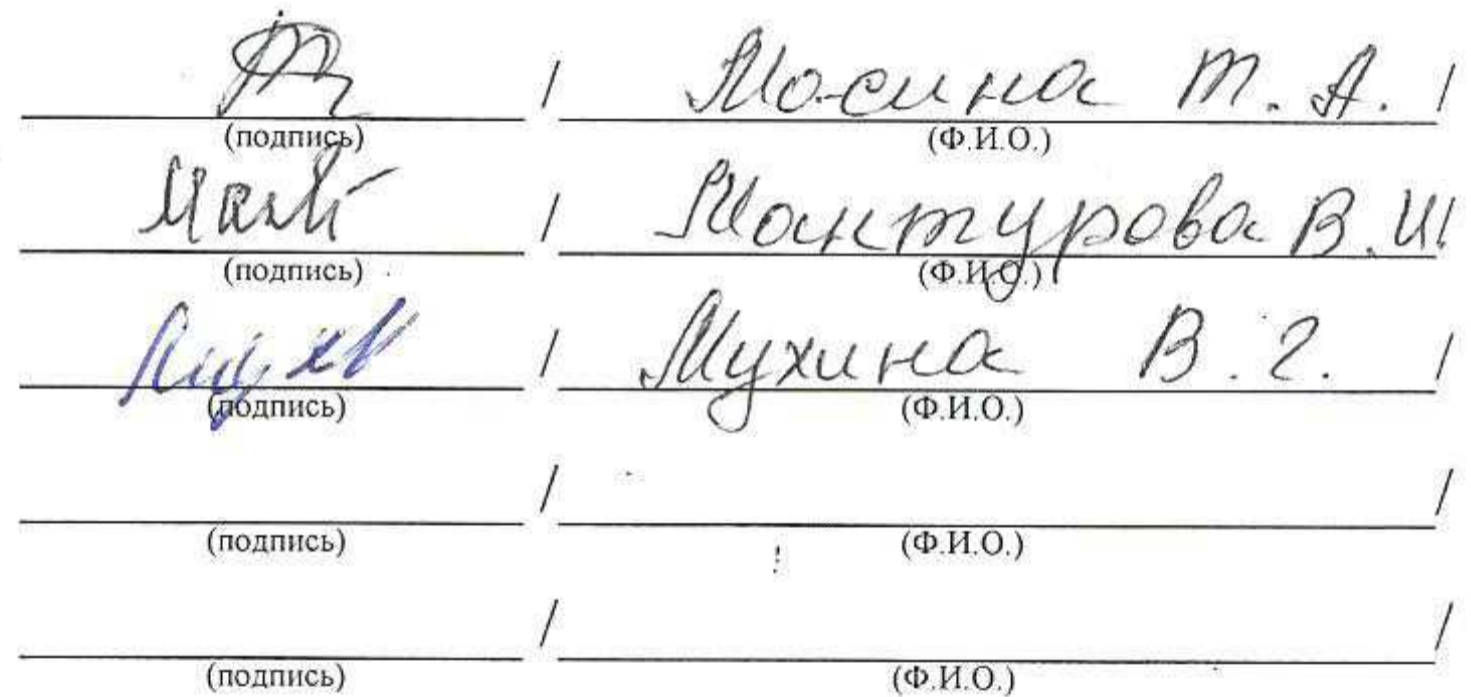 / Мосина Т. А. /
(подпись) (Ф.И.О.)
/ Мантурова В. И
(подпись) (Ф.И.О.)
/ Мухина В. Г. /
(подпись) (Ф.И.О.)
/ /
(подпись) (Ф.И.О.)
/ /
(подпись) (Ф.И.О.)